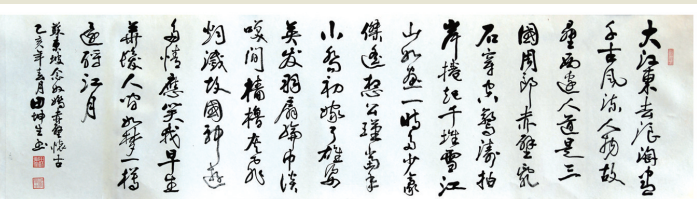 大江東去浪淘盡
千古風流人物故
壘西邊人道是三
國周郎赤壁亂
石穿空驚濤拍
岸捲起千堆雪江
山如畫一時多少豪
傑遙想公瑾當年
小喬初嫁了雄姿
英发羽扇綸巾談
笑間檣櫓灰飛
烟滅故國神遊
多情應笑我早生
華髮人间如夢一樽
還酹江月
蘇東坡念奴嬌赤壁懷古
亥年月田坤生書